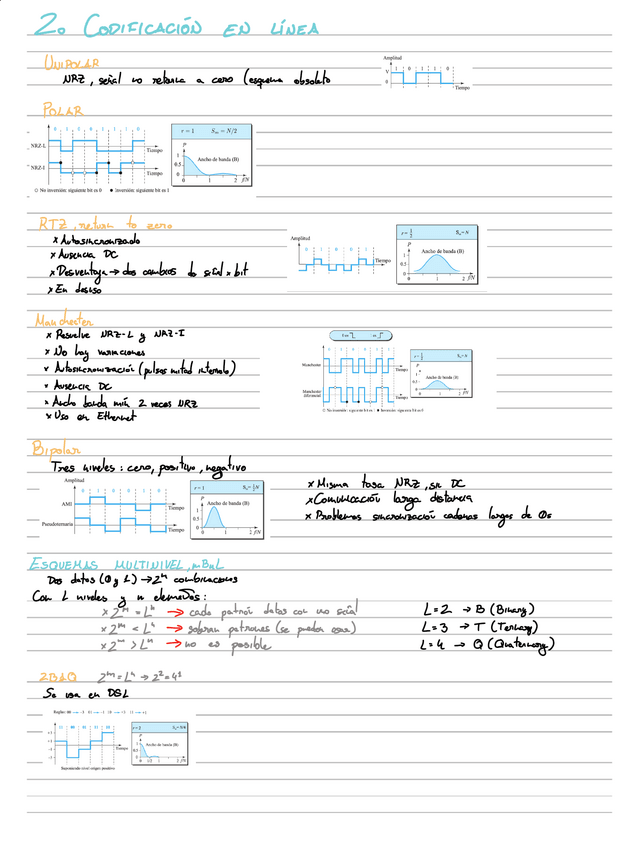 2. CODIFICACIÓN EN LÍNEA
UNIPOLAR
NRZ, señal no retorna a cero (esquema obsoleto
Amplitud
V
1 0 1 1 0
0
Tiempo
POLAR
0 1 0 0 1 1 1 0
NRZ-L
Tiempo
NRZ-I
Tiempo
○ No inversión: siguiente bit es 0 ● Inversión: siguiente bit es 1
r = 1 Sm = N/2
P
1
0.5
0
Ancho de banda (B)
0 1 2 f/N
RTZ, return to zero
x Autosincronizado
x Ausencia DC
x Desventaja → dos cambios de señal x bit
x En desuso
Amplitud
0 1 0 0 1
Tiempo
r = 1/2 Sm = N
P
1
0.5
0
Ancho de banda (B)
0 1 2 f/N
Manchester
x Resuelve NRZ-L y NRZ-I
x No hay variaciones
x Autosincronización (pulsos mitad intervalo)
x Ausencia DC
x Ancho banda mín 2 veces NRZ
x Uso en Ethernet
0 es 1 es
0 1 0 0 1 1
Manchester
Tiempo
Manchester diferencial
Tiempo
○ No inversión: siguiente bit es 1 ● Inversión: siguiente bit es 0
r = 1/2 Sm = N
P
1
0.5
0
Ancho de banda (B)
0 1 2 f/N
Bipolar
Tres niveles: cero, positivo, negativo
Amplitud
0 1 0 0 1 0
AMI
Tiempo
Pseudoternaria
Tiempo
r = 1 Sm = 1/2 N
P
1
0.5
0
Ancho de banda (B)
0 1 2 f/N
x Misma tasa NRZ, sin DC
x Comunicación larga distancia
x Problemas sincronización cadenas largas de 0s
ESQUEMAS MULTINIVEL, mBnL
Dos datos (0 y 1) → 2^m combinaciones
Con L niveles y n elementos:
x 2^m = L^n → cada patrón datos con uno señal
x 2^m < L^n → sobran patrones (se pueden usar)
x 2^m > L^n → no es posible
L=2 → B (Binary)
L=3 → T (Ternary)
L=4 → Q (Quaternary)
2B1Q 2^m = L^n → 2^2 = 4^1
Se usa en DSL
Reglas: 00 → -3 01 → -1 10 → +3 11 → +1
+3
+1
-1
-3
Tiempo
Suponiendo nivel origen positivo
r = 2 Sm = N/4
P
1
0.5
0
Ancho de banda (B)
0 1/2 1 2 f/N